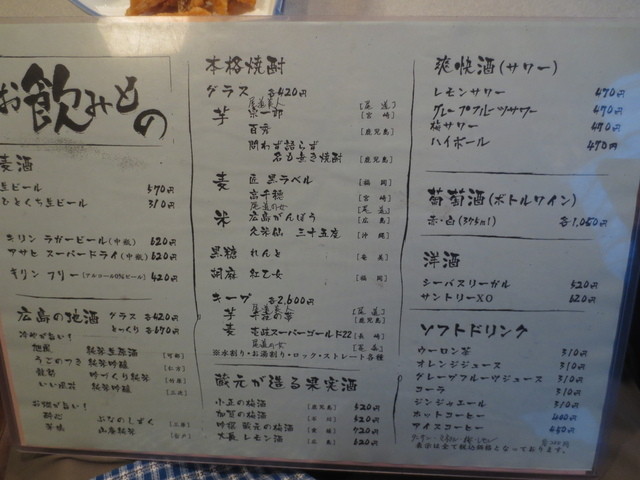 お飲みもの
麦酒
生ビール 570円
ひとくち生ビール 310円
キリン ラガービール(中瓶) 620円
アサヒ スーパードライ(中瓶) 620円
キリン フリー(アルコール0%ビール) 420円
広島の地酒 グラス 各420円
とっくり 各670円
冷やが旨い!
純米吟醸
お燗が旨い!
ぶなのしずく
本格焼酎
グラス 各420円
芋
[尾道]
[宮崎]
百秀 [鹿児島]
問わず語らず
名も無き焼酎 [鹿児島]
麦 匠 黒ラベル [福岡]
高千穂 [宮崎]
[尾道]
米 広島がんぼう [広島]
久米仙 [沖縄]
黒糖 れんと [奄美]
胡麻 紅乙女 [福岡]
キープ 各2,600円
芋 [尾道]
[鹿児島]
麦 壱岐スーパーゴールド22 [長崎]
[尾道]
※水割り・お湯割り・ロック・ストレート各種
蔵元が造る果実酒
小正の梅酒 [鹿児島] 520円
加賀の梅酒 520円
吟醸 蔵元の梅酒 520円
大長 レモン酒 [広島] 520円
爽快酒(サワー)
レモンサワー 470円
グレープフルーツサワー 470円
梅サワー 470円
ハイボール 470円
葡萄酒(ボトルワイン)
赤・白(375ml) 各1,050円
洋酒
シーバスリーガル 520円
サントリーXO 620円
ソフトドリンク
ウーロン茶 310円
オレンジジュース 310円
グレープフルーツジュース 310円
コーラ 310円
ジンジャエール 310円
ホットコーヒー
アイスコーヒー 450円
表示は全て税込価格となっております。